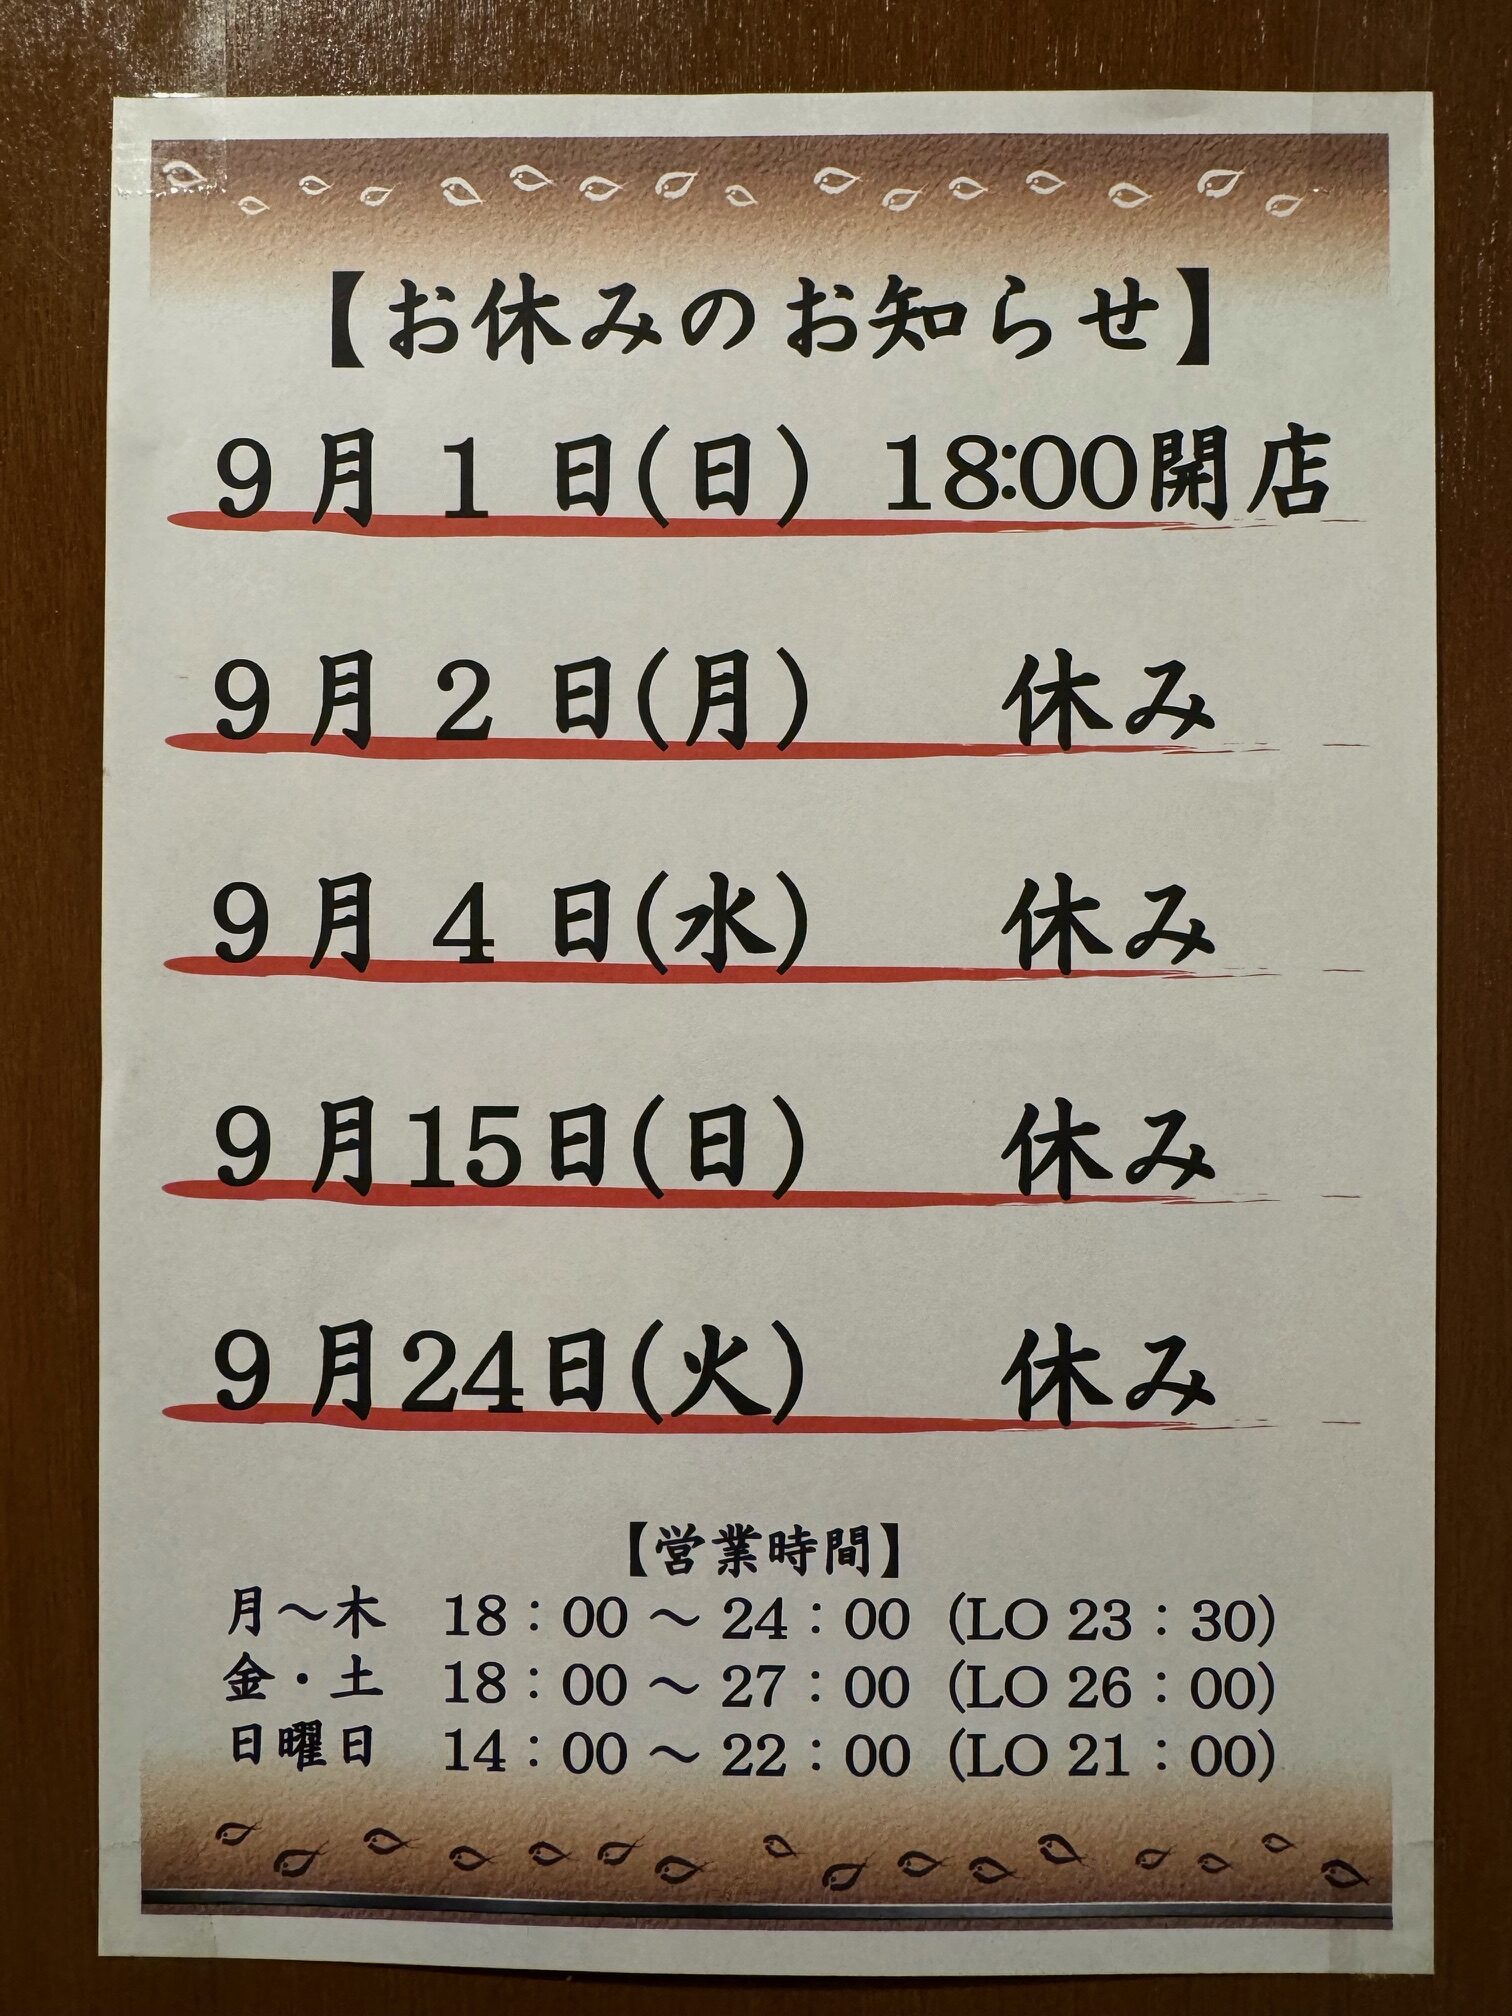 【お休みのお知らせ】
9月1日(日) 18:00開店
9月2日(月) 休み
9月4日(水) 休み
9月15日(日) 休み
9月24日(火) 休み
【営業時間】
月～木 18：00～24：00 (LO 23：30)
金・土 18：00～27：00 (LO 26：00)
日曜日 14：00～22：00 (LO 21：00)